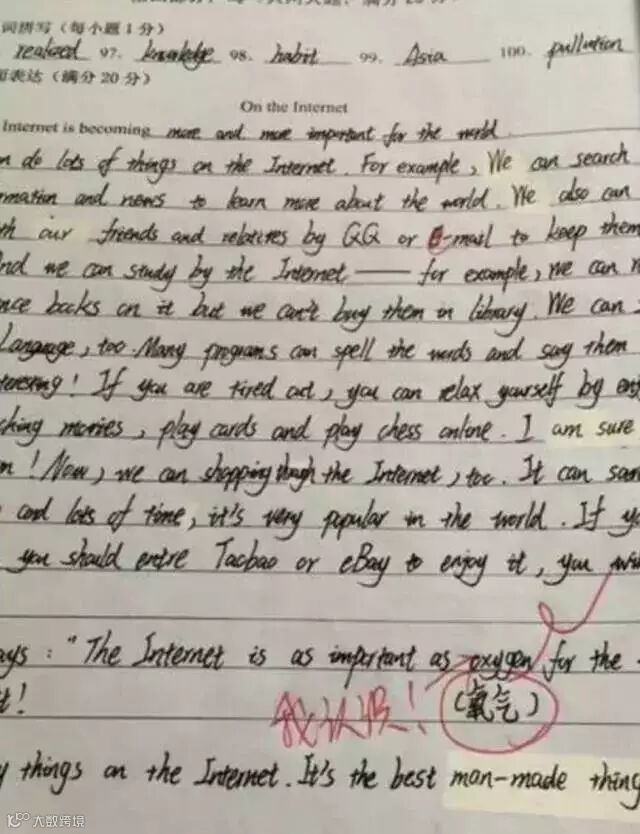 词拼写（每小题 1 分）
realized 97. knowledge 98. habit 99. Asia 100. pullution
表达（满分 20 分）
On the Internet
Internet is becoming more and more important for the world.
do lots of things on the Internet. For example, We can search
and news to learn more about the world. We also can
our friends and relatives by QQ or E-mail to keep them
And we can study by the Internet —— for example, we can
books on it but we can't buy them in library. We can
Language, too. Many programs can spell the words and say them
! If you are tired out, you can relax yourself by
movies, play cards and play chess online. I am sure
! Now, we can shopping though the Internet, too. It can
and lots of time, it's very popular in the world. If
you should entre Taobao or eBay to enjoy it, you
: "The Internet is as important as oxygen for the
(氧气)
我认识！
things on the Internet. It's the best man-made thing
大数跨境